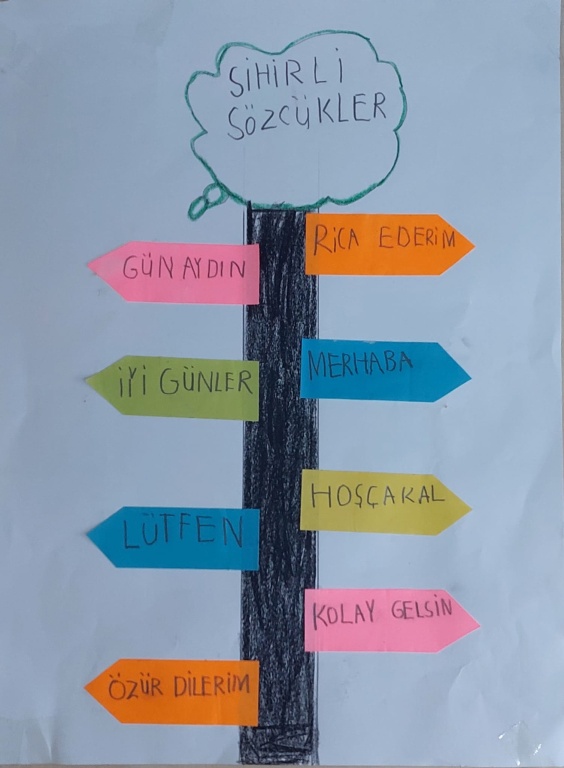 SİHİRLİ
SÖZCÜKLER
RİCA EDERİM
GÜNAYDIN
MERHABA
İYİ GÜNLER
HOŞÇAKAL
LÜTFEN
KOLAY GELSİN
ÖZÜR DİLERİM